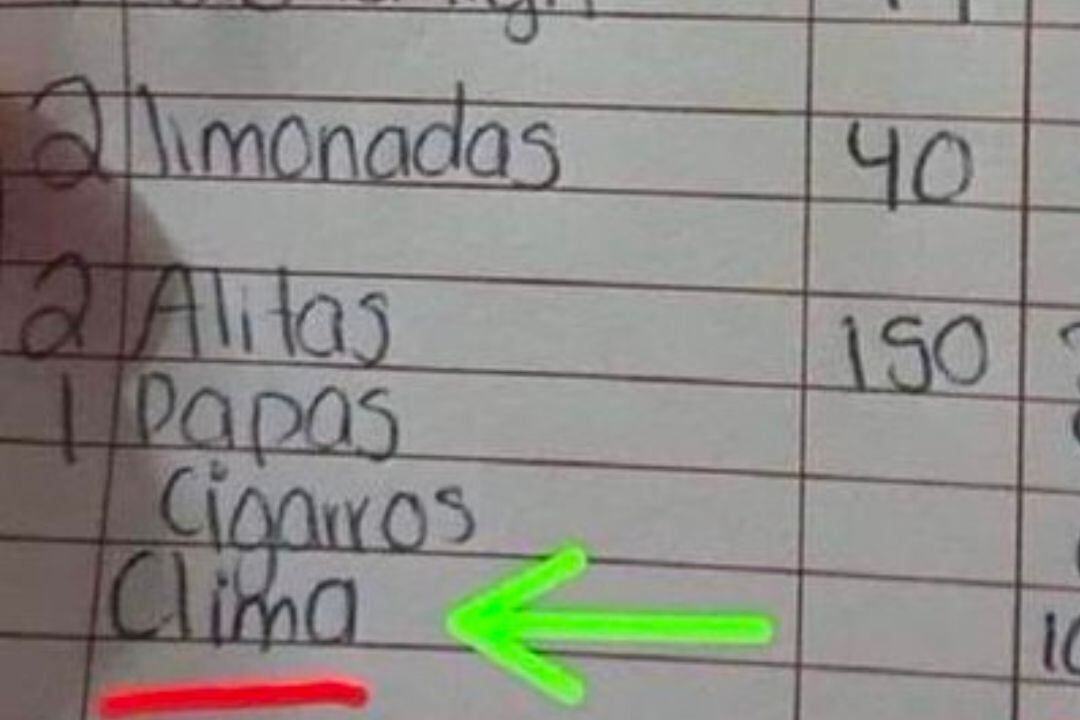 2 limonadas 40
2 Alitas 150
1 papas
Cigarros
Clima 10